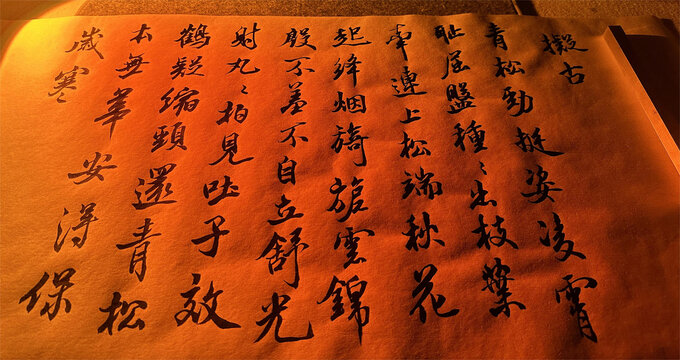 擬古
青松勁挺姿凌霄
耻屈盤種〻出枝葉
牽連上松端秋花
起絳烟旖旎雲錦
殷不羞不自立舒光
射丸〻柏見吐子效
鶴疑縮頸還青松
本無華安得保
歲寒